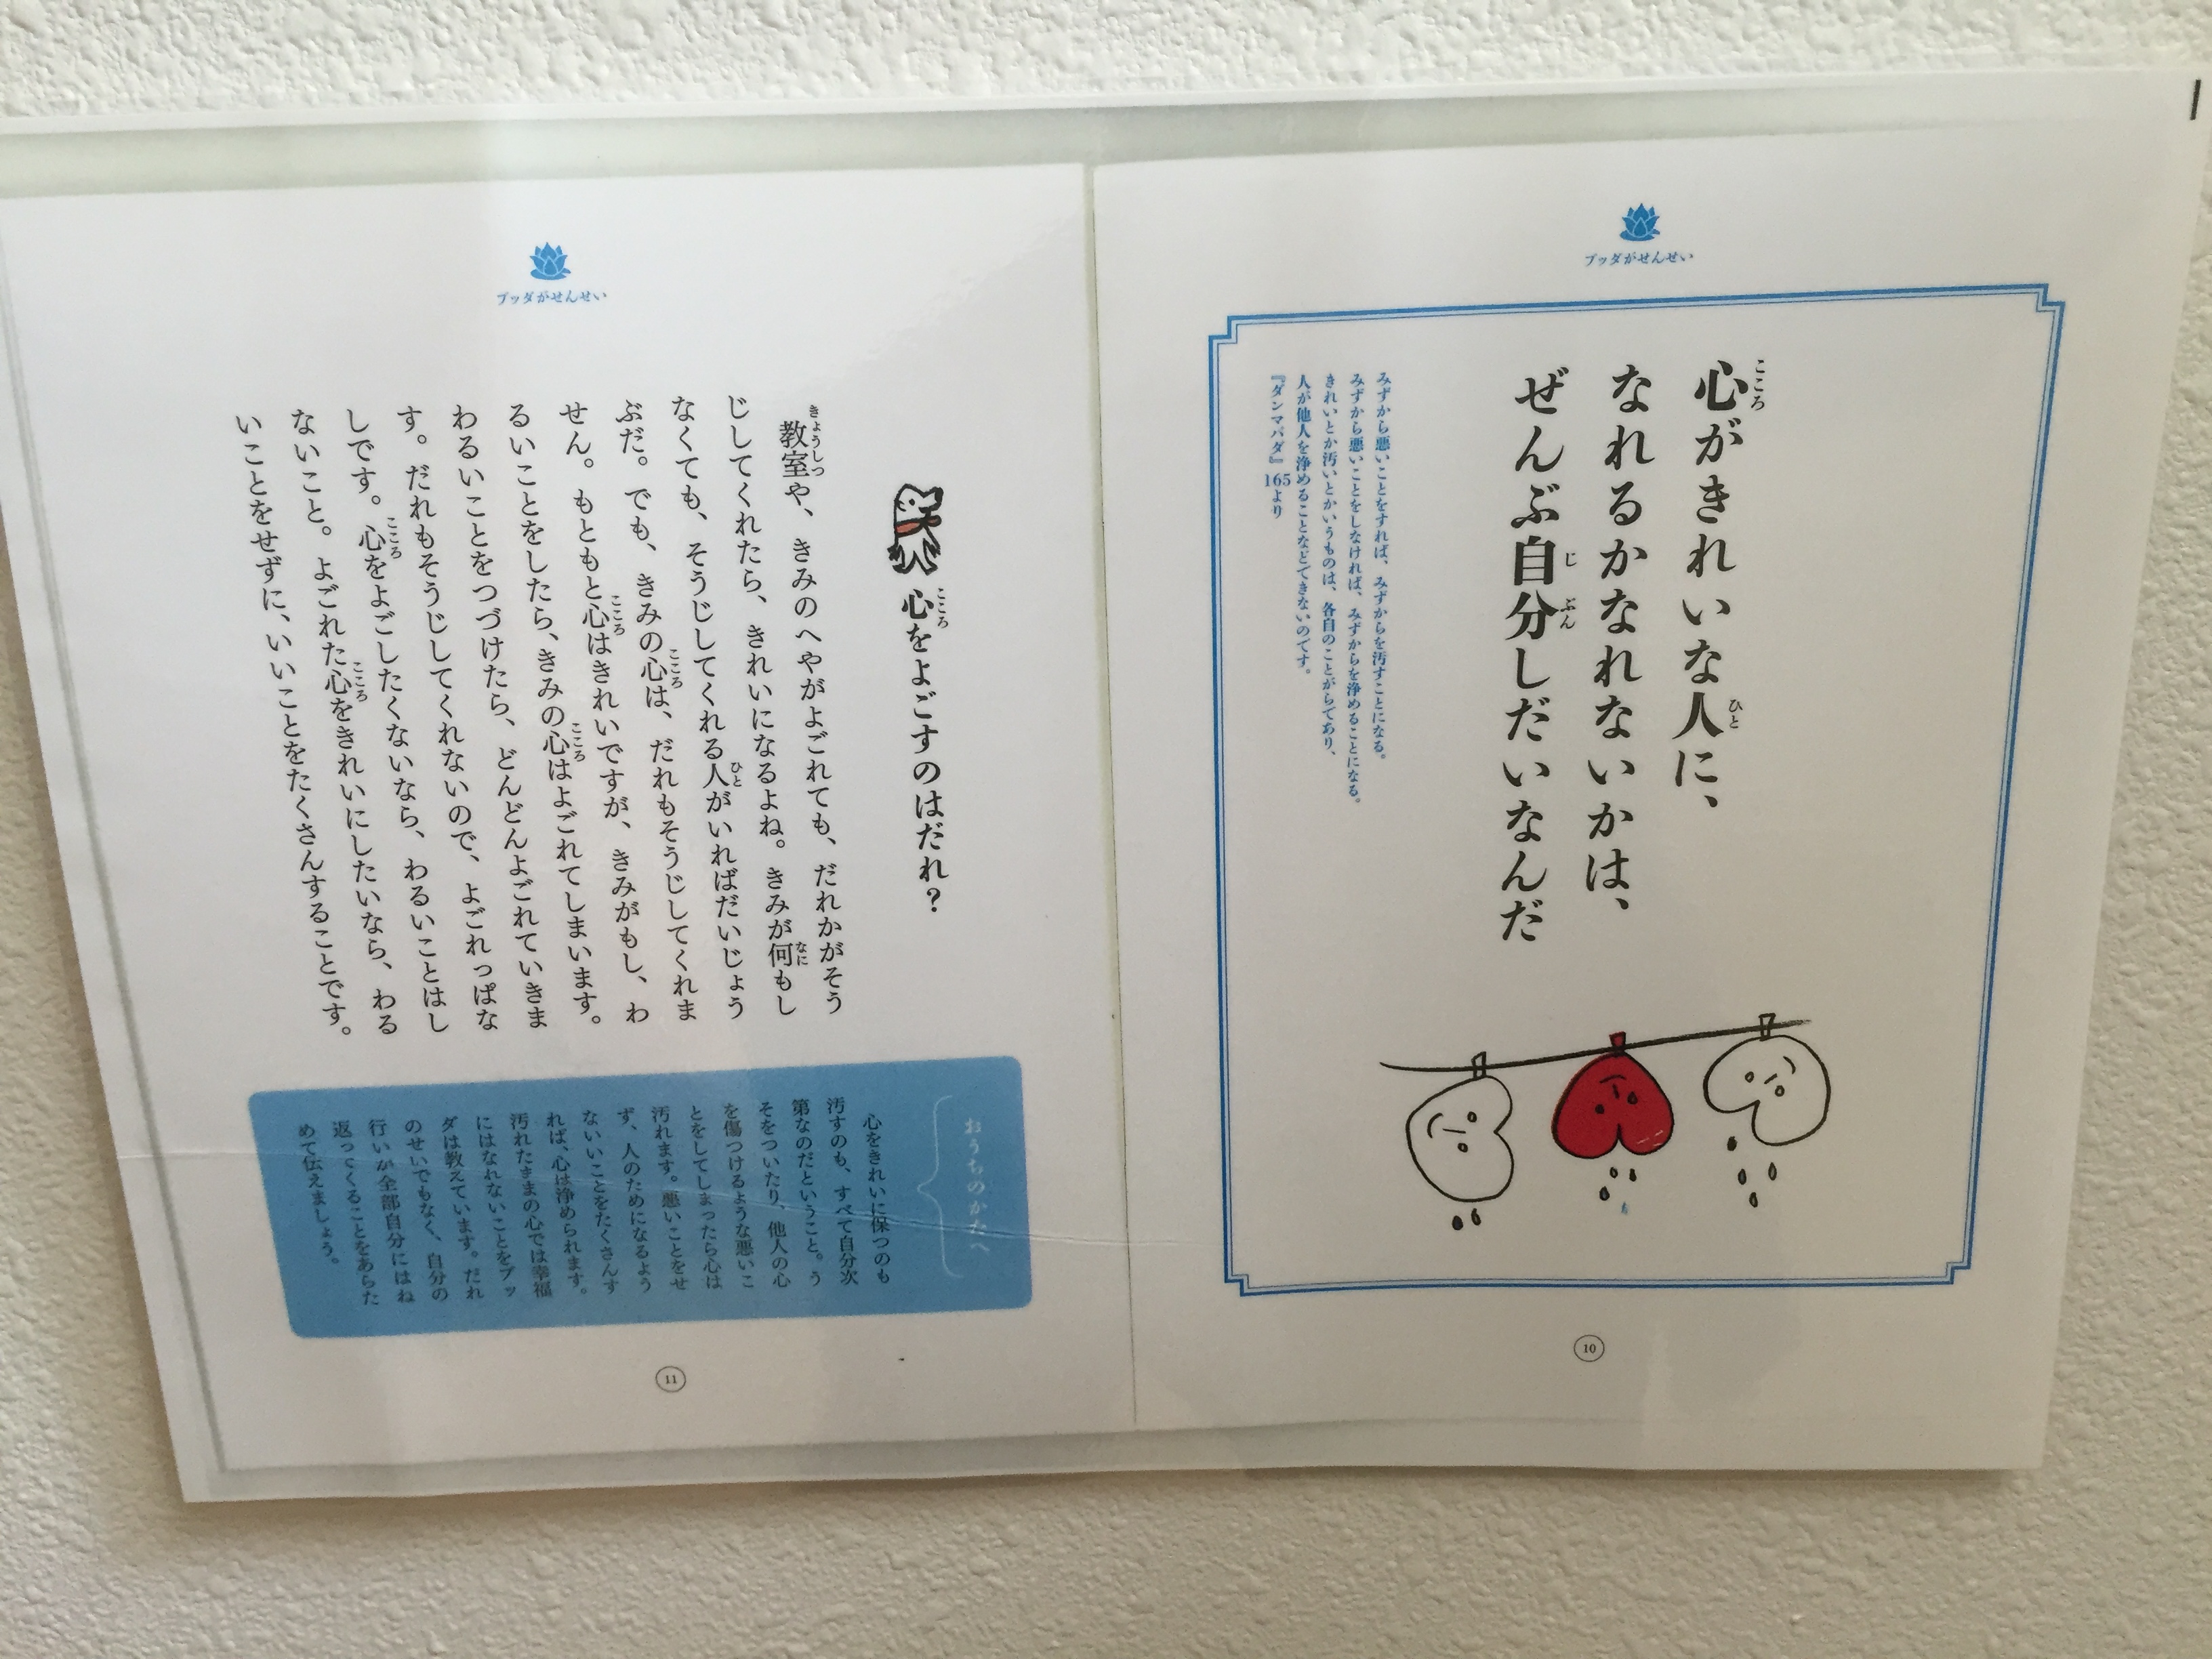 ブッダがせんせい
心がきれいな人に、
なれるかなれないかは、
ぜんぶ自分しだいなんだ
こころ
ひと
じぶん
みずから悪いことをすれば、みずからを汚すことになる。
みずから悪いことをしなければ、みずからを浄めることになる。
きれいとか汚いとかいうものは、各自のことがらであり、
人が他人を浄めることなどできないのです。
『ダンマパダ』165より
10
ブッダがせんせい
心をよごすのはだれ？
こころ
教室や、きみのへやがよごれても、だれかがそう
きょうしつ
じしてくれたら、きれいになるよね。きみが何もし
なに
なくても、そうじしてくれる人がいればだいじょう
ひと
ぶだ。でも、きみの心は、だれもそうじしてくれま
こころ
せん。もともと心はきれいですが、きみがもし、わ
こころ
るいことをしたら、きみの心はよごれてしまいます。
こころ
わるいことをつづけたら、どんどんよごれていきま
す。だれもそうじしてくれないので、よごれっぱな
しです。心をよごしたくないなら、わるいことはし
こころ
ないこと。よごれた心をきれいにしたいなら、わる
こころ
いことをせずに、いいことをたくさんすることです。
おうちのかたへ
心をきれいに保つのも
汚すのも、すべて自分次
第なのだということ。う
そをついたり、他人の心
を傷つけるような悪いこ
とをしてしまったら心は
汚れます。悪いことをせ
ず、人のためになるよう
ないいことをたくさんす
れば、心は浄められます。
汚れたままの心では幸福
にはなれないことをブッ
ダは教えています。だれ
のせいでもなく、自分の
行いが全部自分にはね
返ってくることをあらた
めて伝えましょう。
11